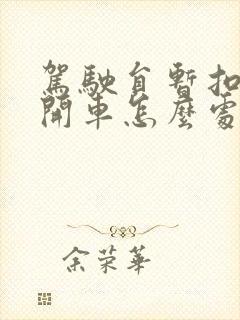 駕駛自暫扣
開車怎麼處
余荣華